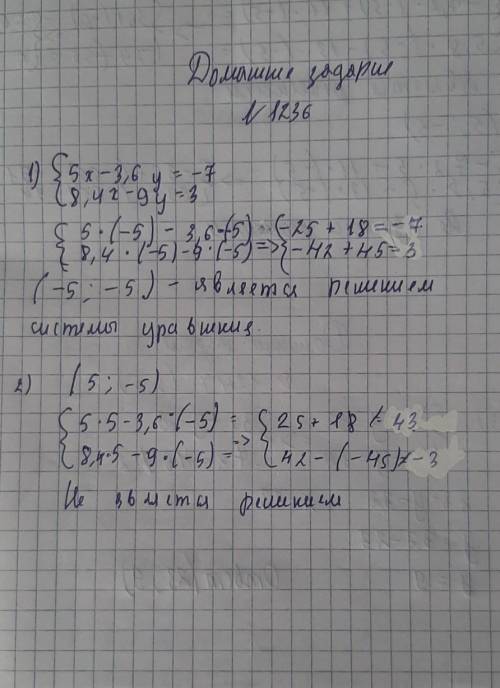 Домашнее задание
№ 1236
1) { 5x - 3,6 y = -7
{ 8,4x - 9y = 3
{ 5 · (-5) - 3,6 · (-5) { -25 + 18 = -7
{ 8,4 · (-5) - 9 · (-5) => { -42 + 45 = 3
(-5 ; -5) - является решением
системы уравнения.
2) (5 ; -5)
{ 5·5 - 3,6 · (-5) = { 25 + 18 ≠ 43
{ 8,4·5 - 9 · (-5) = => { 42 - (-45) ≠ -3
Не является решением